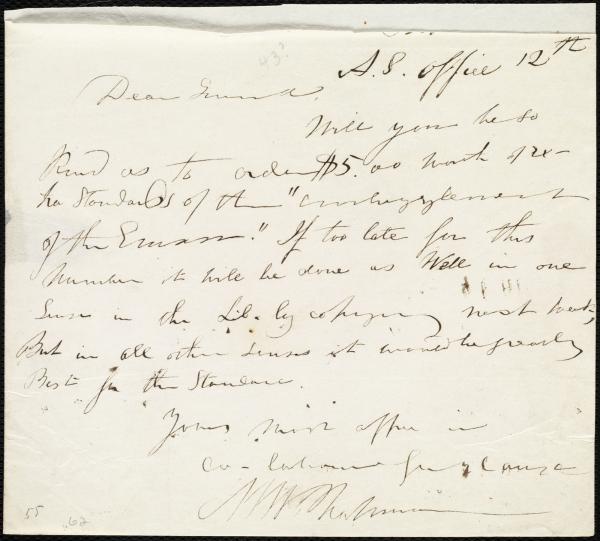 43?
A.S. Office 12th
Dear Friend.
Will you be so
kind as to order $5.00 worth of ex-
tra Standards of the "Embezzlement
of the Eman." If too late for this
number it will be done as Well in one
sense in the Lib. by copying next week,
But in all other senses it would be greatly
Best for the Standard.
Yours most affec in
co-labour for ye cause
55 .62